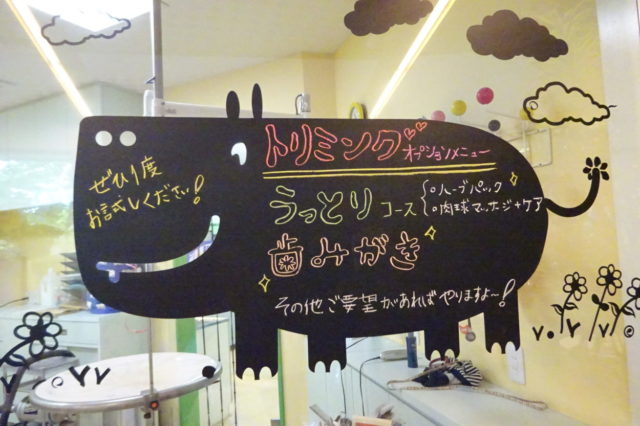 トリミング オプションメニュー
ぜひ1度
お試しください!
うっとり コース
。ハーブパック
。肉球マッサージ+ケア
歯みがき
その他ご要望があればやりますよ〜!